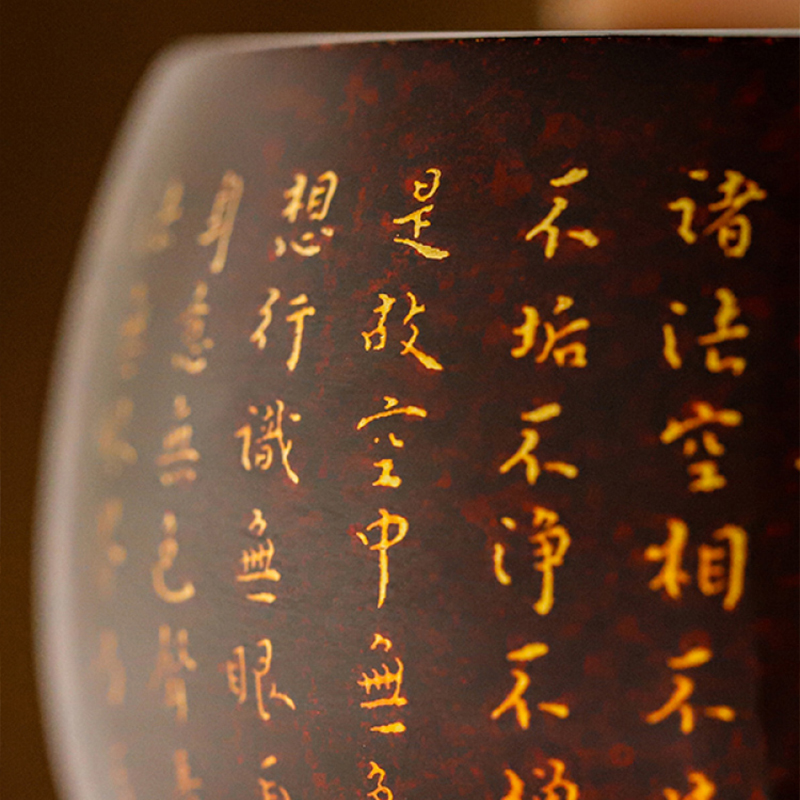 諸法空相不
不垢不淨不增
是故空中無色
想行識無眼耳
身意無色聲